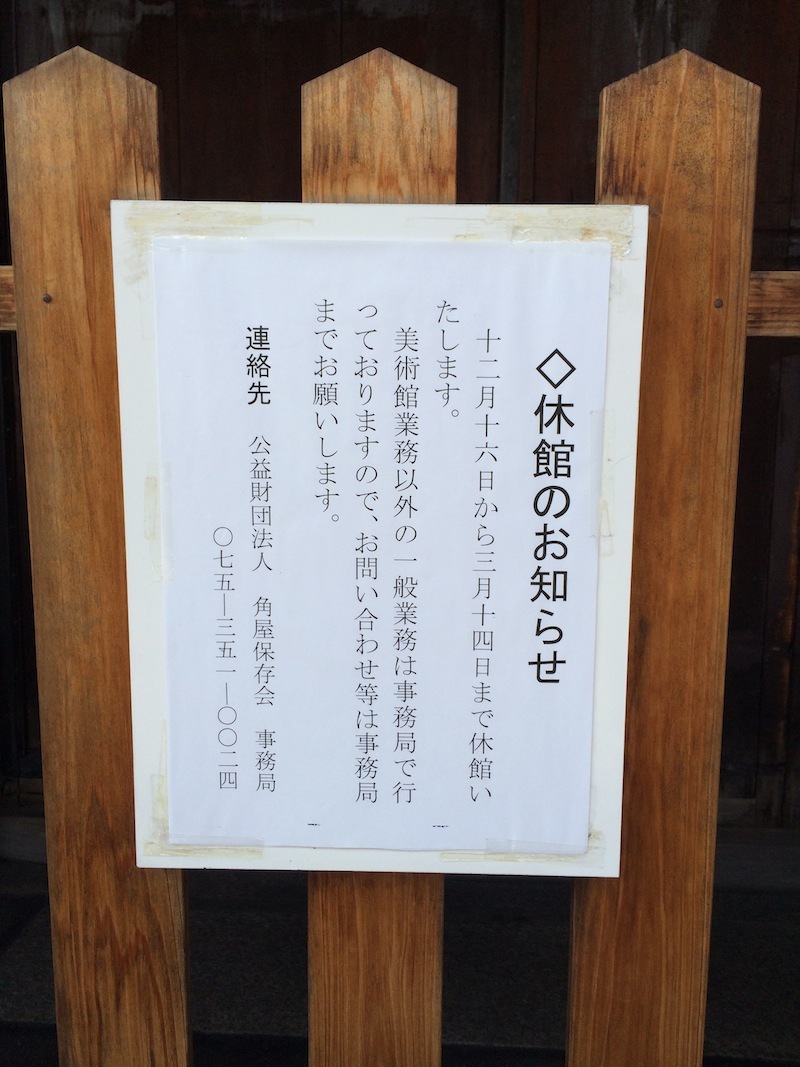 ◇休館のお知らせ
十二月十六日から三月十四日まで休館い
たします。
美術館業務以外の一般業務は事務局で行
っておりますので、お問い合わせ等は事務局
までお願いします。
連絡先　公益財団法人　角屋保存会　事務局
〇七五―三五一―〇〇二四